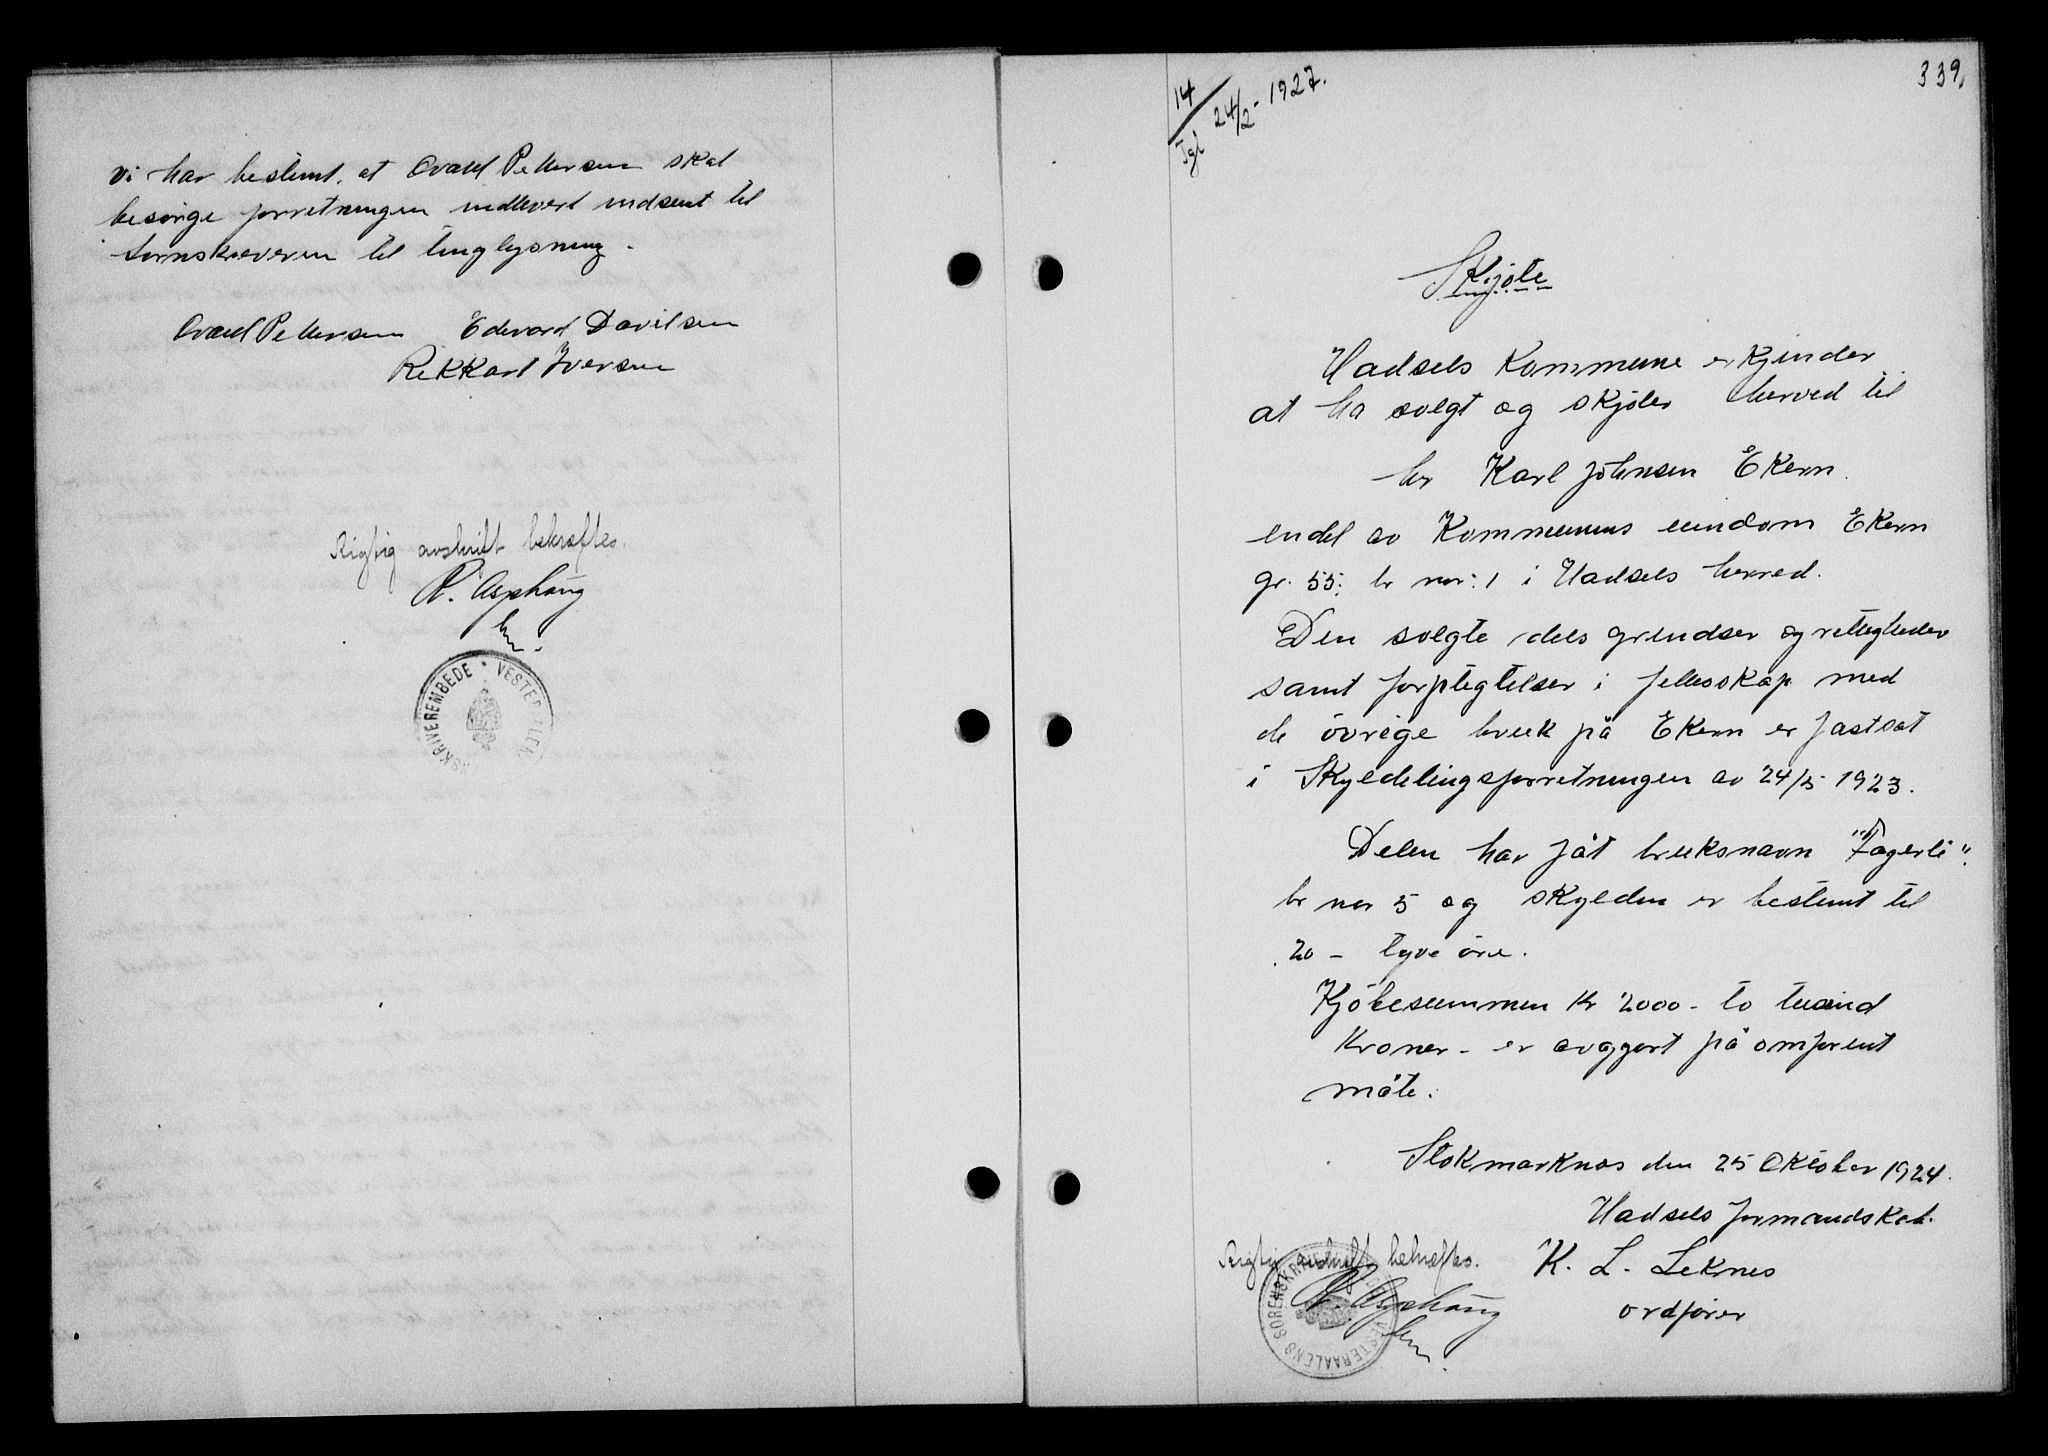 Vi har bestemt, at Evald Pettersen skal
besørge forretningen indlevert indsent til
sornskriveren til tinglysning.
Evald Pettersen Edvard Davilsen
Rikkart Iversen
Rigtig avskrift bekræftes.
P. Asphaug
NSKRIVEREMBEDE • VESTER
339.
14
Tgl 24/2 - 1927.
Skjøte
Hadsels Kommune erkjender
at ha solgt og skjøter herved til
hr Karl Johnsen Ekern.
endel av Kommunens eiendom Ekern
gr. 55: br nr: 1 i Hadsels herred.
Den solgte dels grændser og rettigheder
samt forpligtelser i fellesskap med
de øvrige bruk på Ekern er fastsat
i Skyldelingsforretningen av 24/5 1923.
Delen har fåt bruksnavn "Fagerli".
br nr 5 og skylden er bestemt til
20 - tyve øre.
Kjøbesummen Kr 2000 - to tusind
Kroner - er avgjort på omforent
måte.
Stokmarknes den 25 Oktober 1924.
Hadsels formandskab.
K. L. Leknes
ordfører
Rigtig avskrift bekræftes.
P. Asphaug
VESTERAALENS SORENSKRIVEREMBEDE